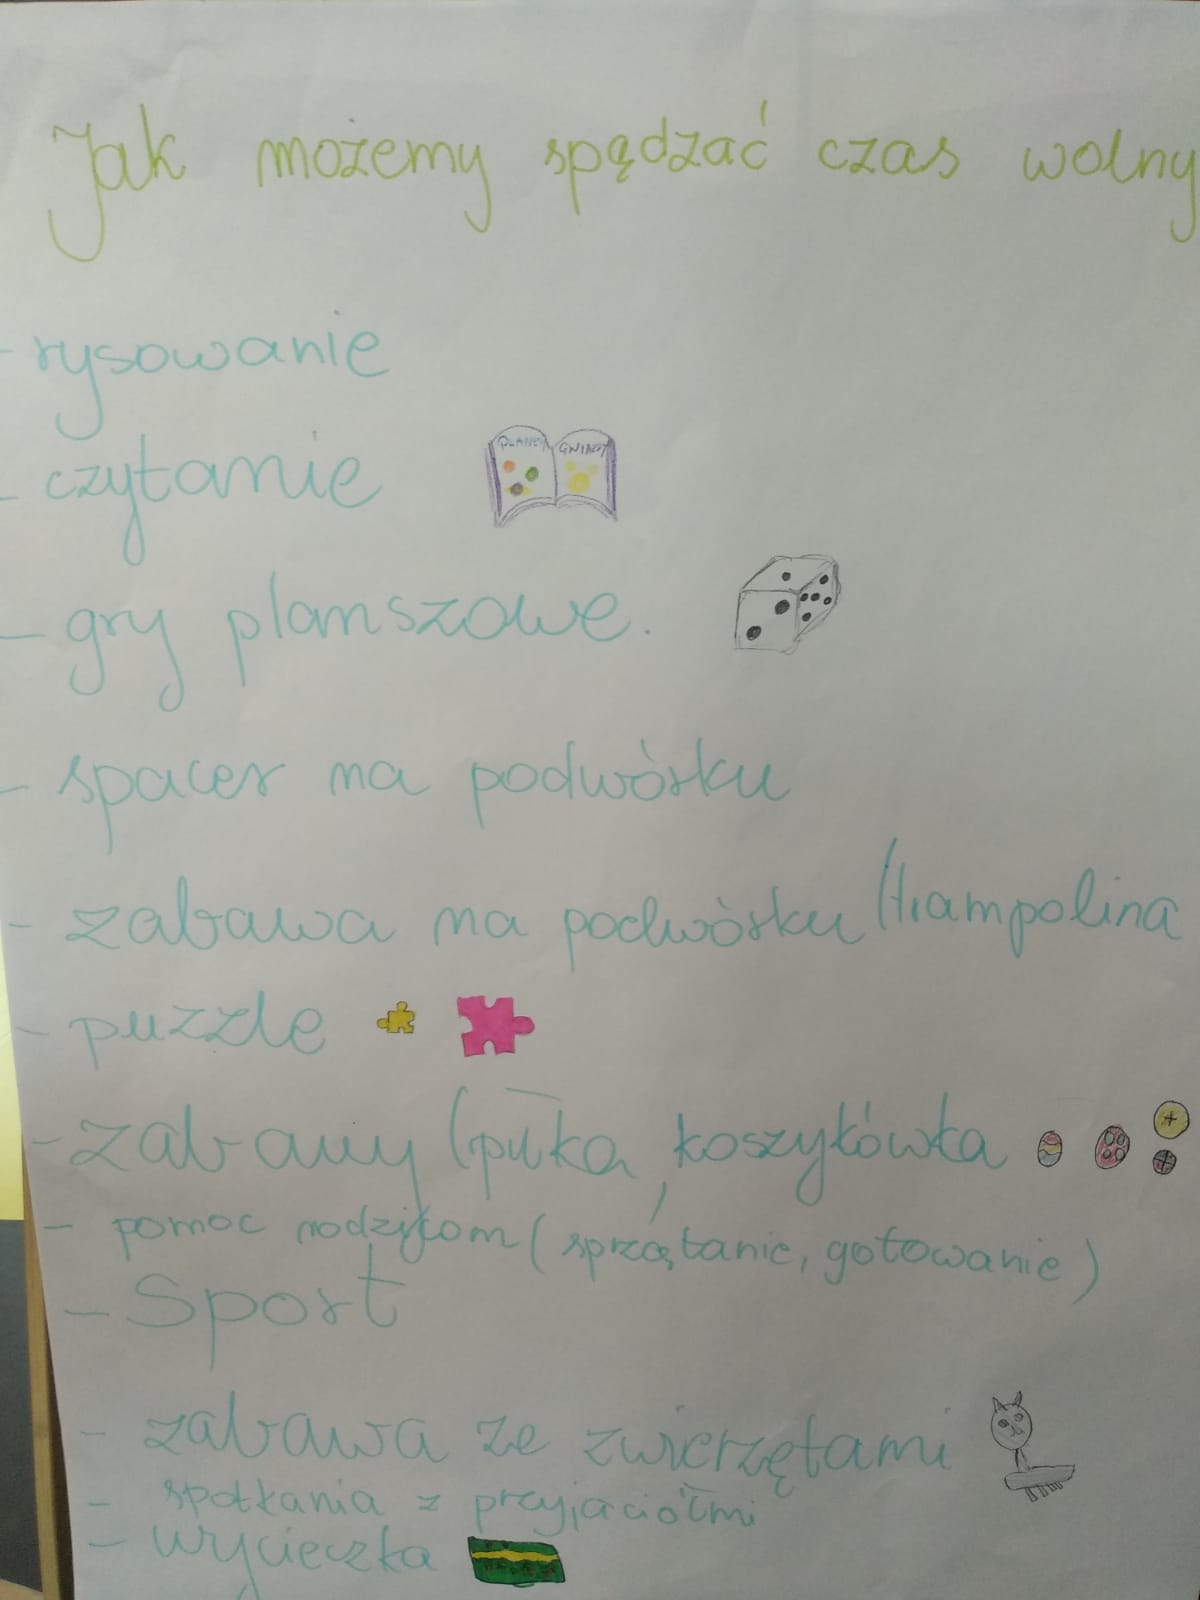 Jak możemy spędzać czas wolny
- rysowanie
- czytanie
PLANETY GWIAZDY
- gry planszowe.
- spacer na podwórku
- zabawa na podwórku (trampolina
- puzzle
- zabawy (piłka, koszykówka
- pomoc rodzicom (sprzątanie, gotowanie)
- Sport
- zabawa ze zwierzętami
- spotkania z przyjaciółmi
- wycieczka